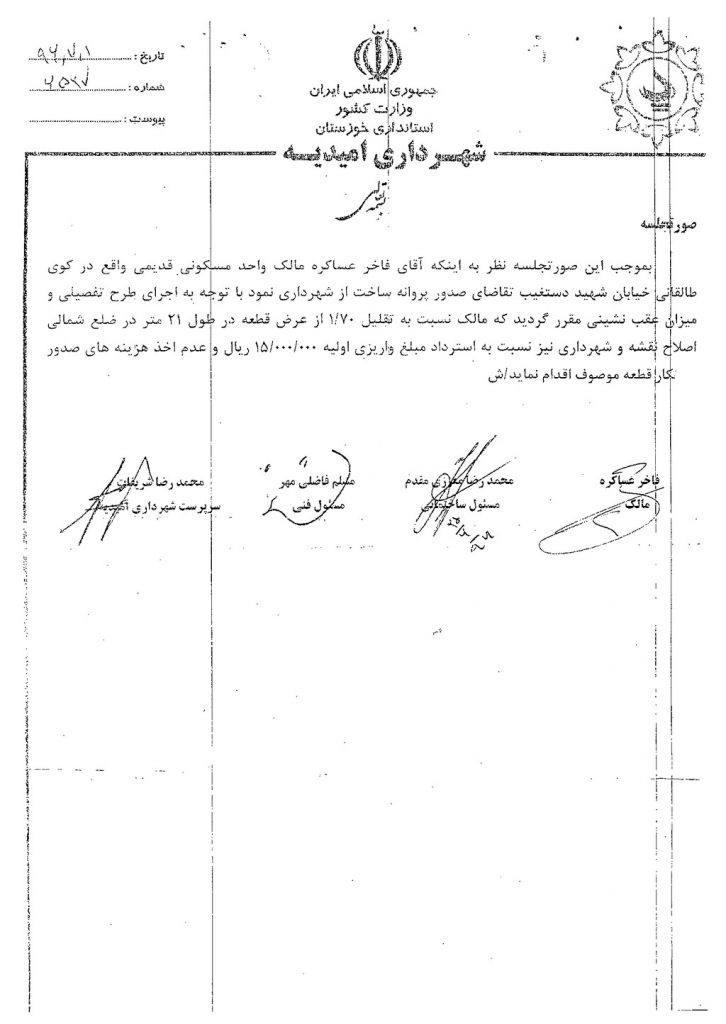 تاریخ : ۹۶,۷,۱
شماره :
پیوست :
جمهوری اسلامی ایران
وزارت کشور
استانداری خوزستان
شهرداری امیدیه
بسمه تعالی
صورتجلسه
بموجب این صورتجلسه نظر به اینکه آقای فاخر عساکره مالک واحد مسکونی قدیمی واقع در کوی
طالقانی خیابان شهید دستغیب تقاضای صدور پروانه ساخت از شهرداری نمود با توجه به اجرای طرح تفصیلی و
میزان عقب نشینی مقرر گردید که مالک نسبت به تقلیل ۱/۷۰ از عرض قطعه در طول ۲۱ متر در ضلع شمالی
اصلاح نقشه و شهرداری نیز نسبت به استرداد مبلغ واریزی اولیه ۱۵/۰۰۰/۰۰۰ ریال و عدم اخذ هزینه های صدور
قطعه موصوف اقدام نماید/ش
فاخر عساکره
مالک
محمد رضا مقدم
مسئول ساختمانی
مسلم فاضلی مهر
مسئول فنی
محمد رضا شریفات
سرپرست شهرداری امیدیه